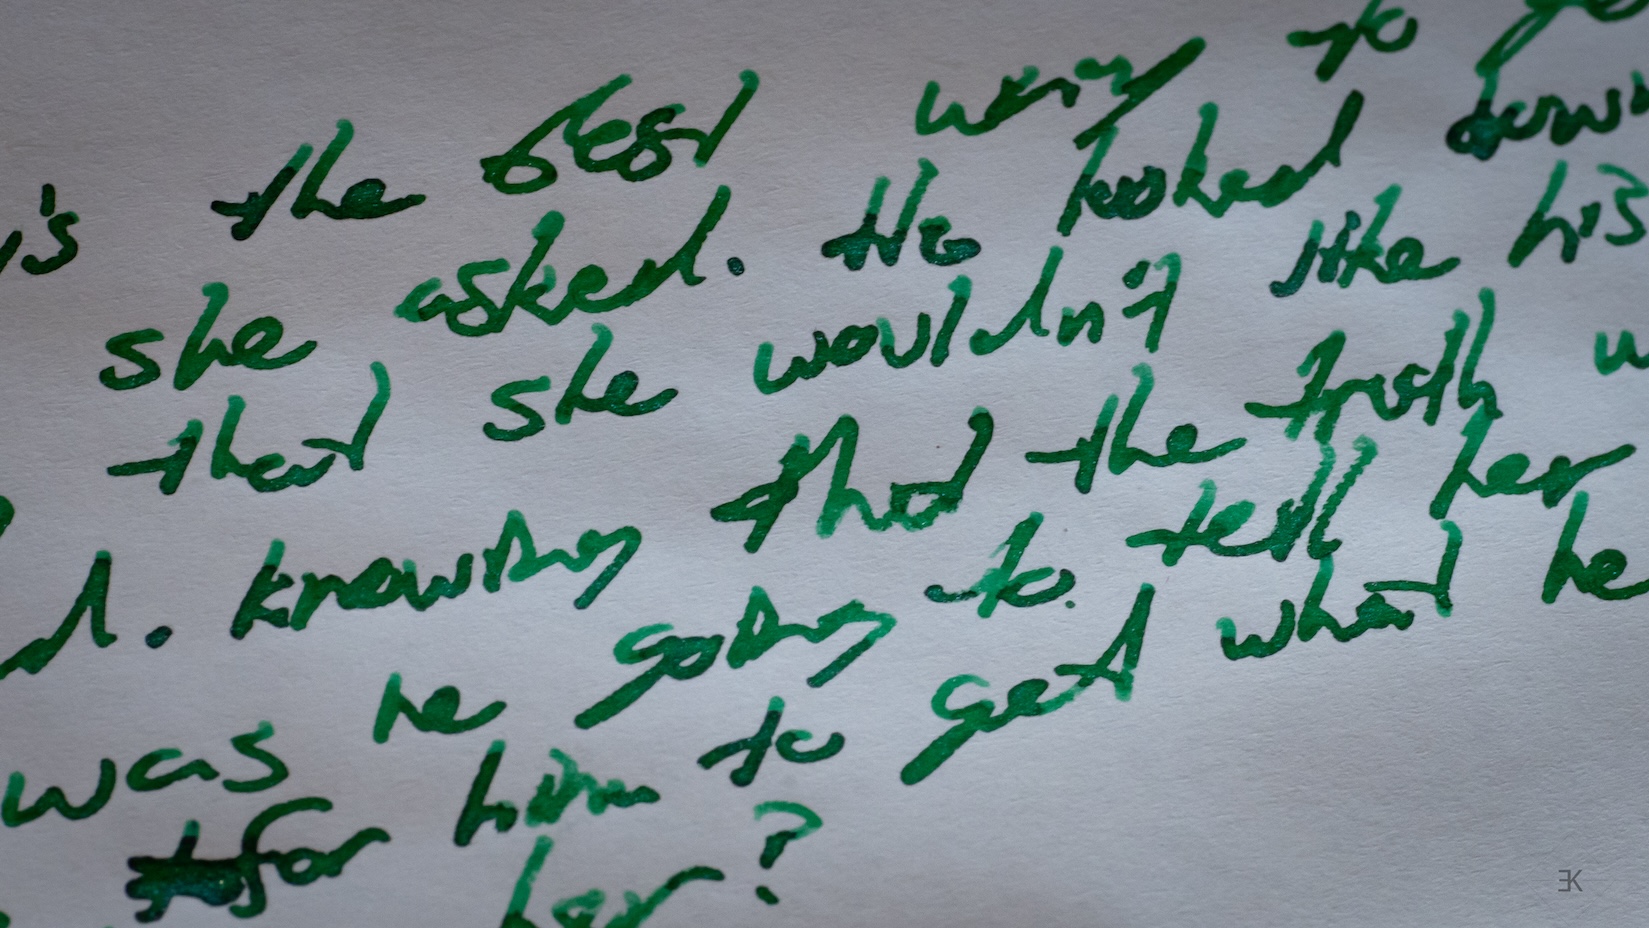 's the best way to
she asked. He looked down
that she wouldn't like his
d. knowing that the truth
was he going to tell her
for him to get what he
her?
ƎK